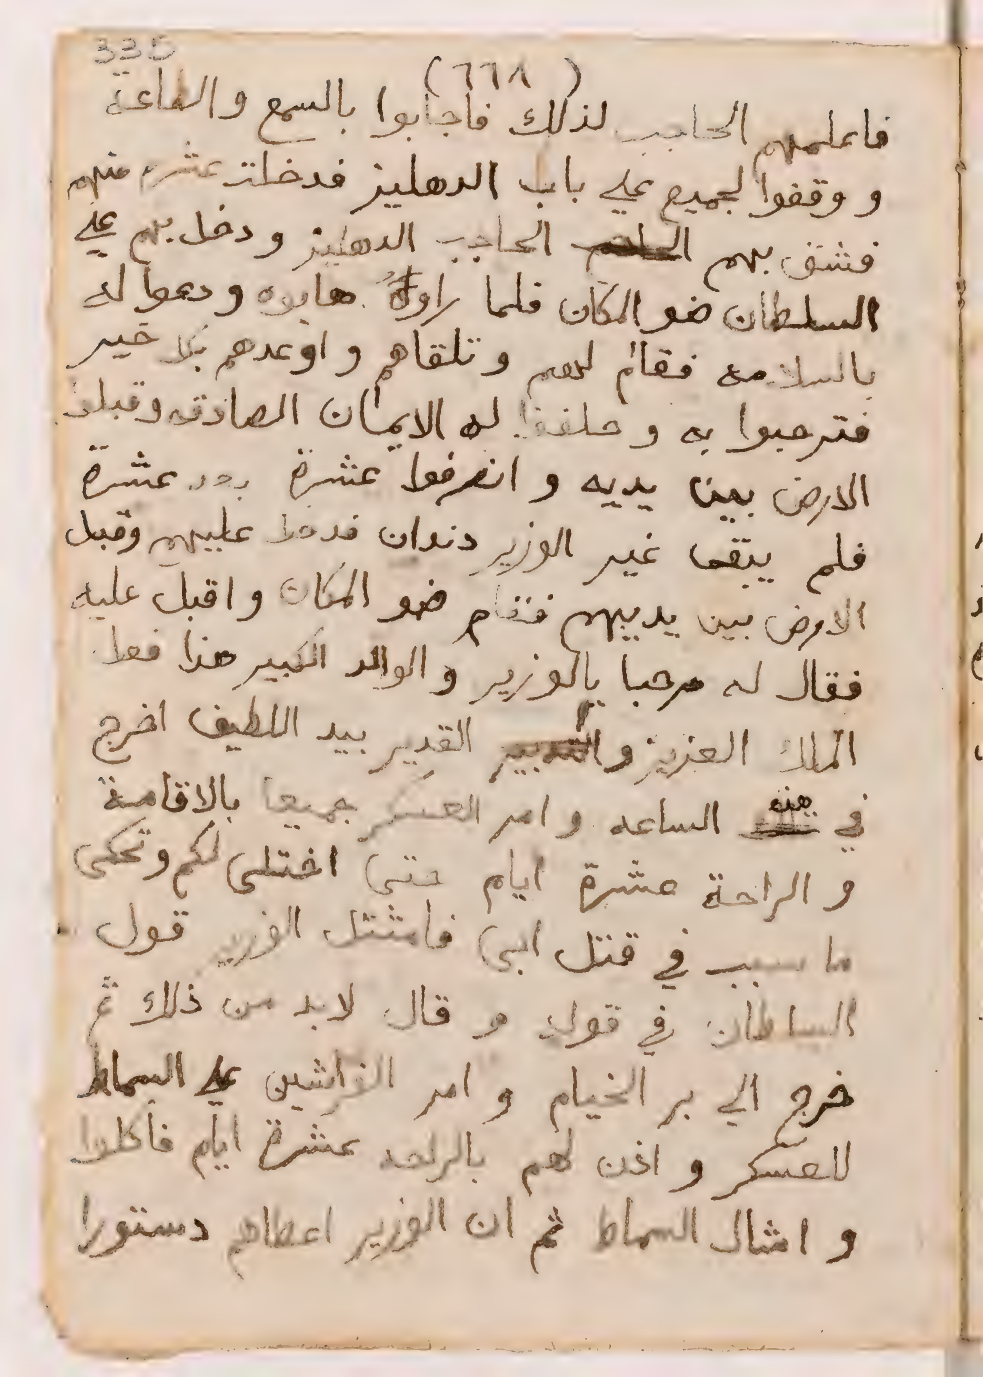 335
(٦٦٨)
فاعلمهم الحاجب لذلك فاجابوا بالسمع والطاعة
و وقفوا لجميع علي باب الدهليز فدخلت عشره منهم
فشق بهم الحاجب الدهليز ودخل بهم علي
السلطان ضو المكان فلما راوه هابوه ودعوا له
بالسلامه فقام لهم وتلقاهم و اوعدهم بكل خير
فترحبوا به و حلفوا له الايمان الصادقه وقبلوا
الارض بين يديه و انصرفوا عشرة بعد عشرة
فلم يبقا غير الوزير دندان فدخل عليهم وقبل
الارض بين يديهم فقام ضو المكان واقبل عليه
فقال له مرحبا بالوزير و الوالد الكبير هذا فعل
الملك العزيز والتدبير القدير بيد اللطيف اخرج
في هذه الساعه و امر العسكر جميعا بالاقامة
و الراحة عشرة ايام حتى اختلى لكم وتحكى
ما سبب في قتل ابى فامتثل الوزير قول
السلطان في قوله و قال لابد من ذلك ثم
خرج الي بر الخيام و امر الفراشين علي السماط
للعسكر و اذن لهم بالراحه عشرة ايام فاكلوا
و اشال السماط ثم ان الوزير اعطاهم دستورا